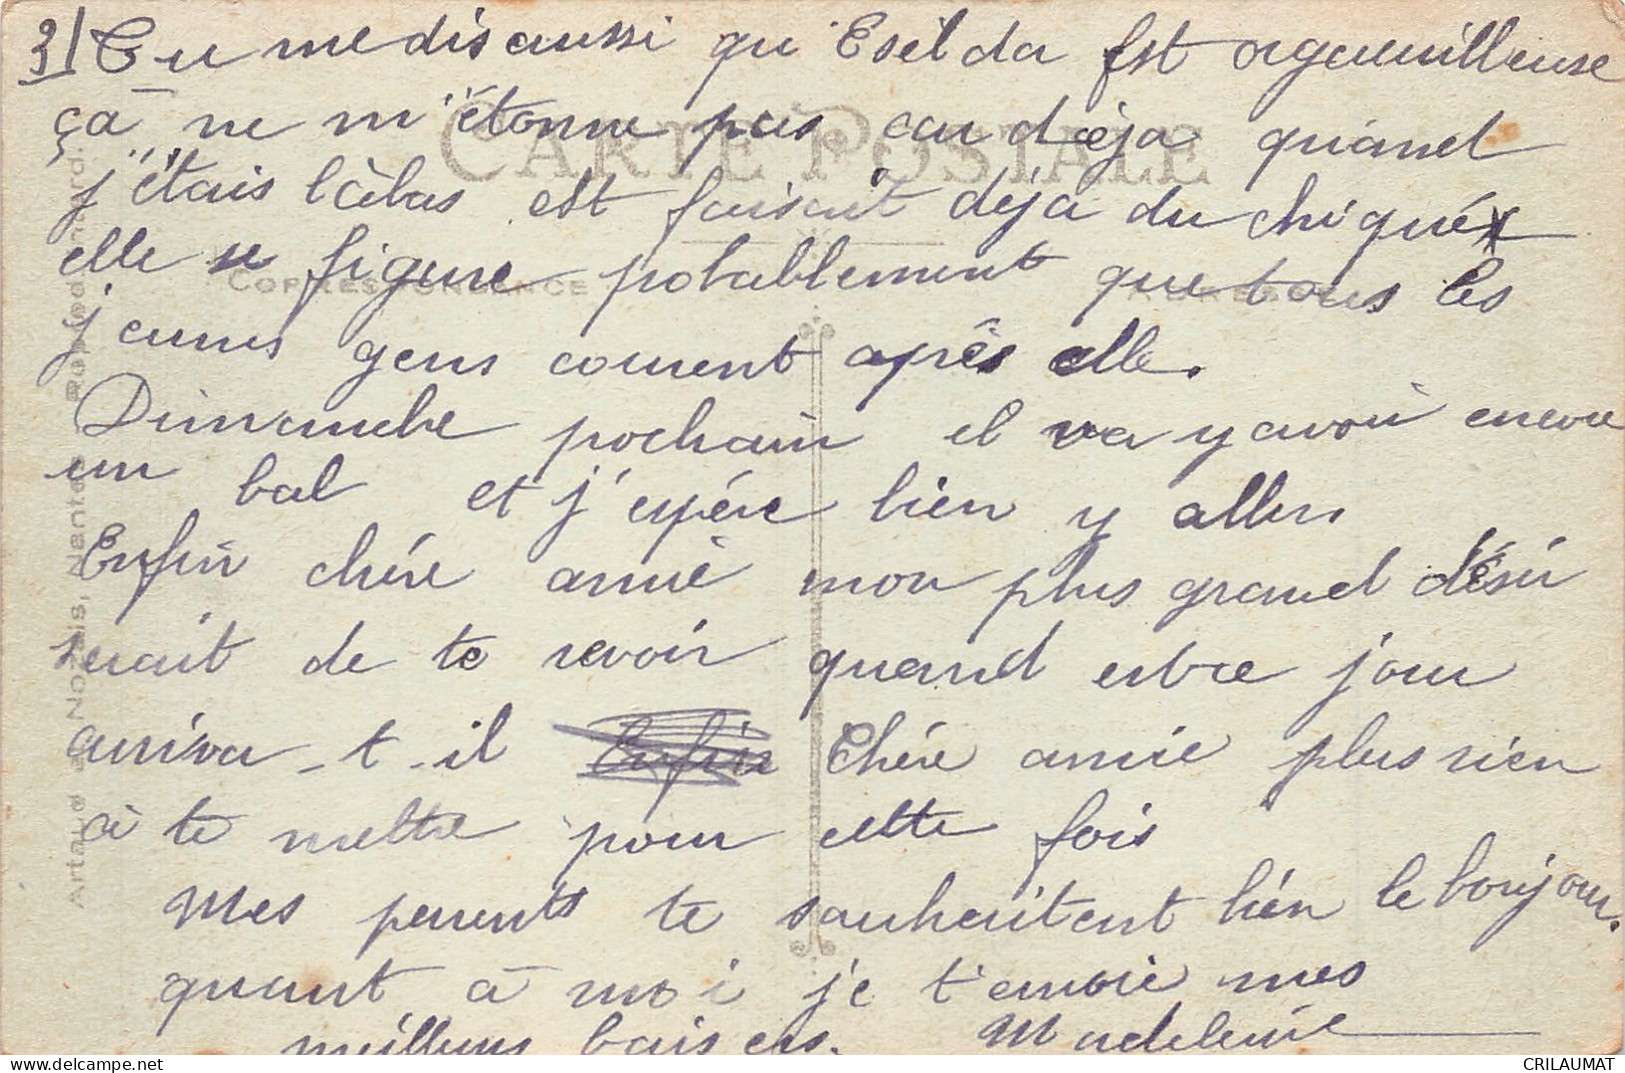 3/ Tu me dis aussi qu'Esilda est orgueuilleuse
ça ne m'étonne pas car déja quand
j'étais làbas est faisait déja du chiqué
elle se figure probablement que tous les
jeunes gens courent après elle.
Dimanche prochain il va y avoir encore
un bal et j'espére bien y aller.
Enfin chére amie mon plus grand désir
serait de te revoir quand estce jour
arriva-t-il Enfin Chére amie plus rien
à te mettre pour cette fois
Mes parents te souhaitent bien le bonjour.
quant à moi je t'envoie mes
meilleurs baisers. Madeleine
CARTE POSTALE
CORRESPONDANCE
ADRESSE
Artaud Nozais, Nantes
CRILAUMAT